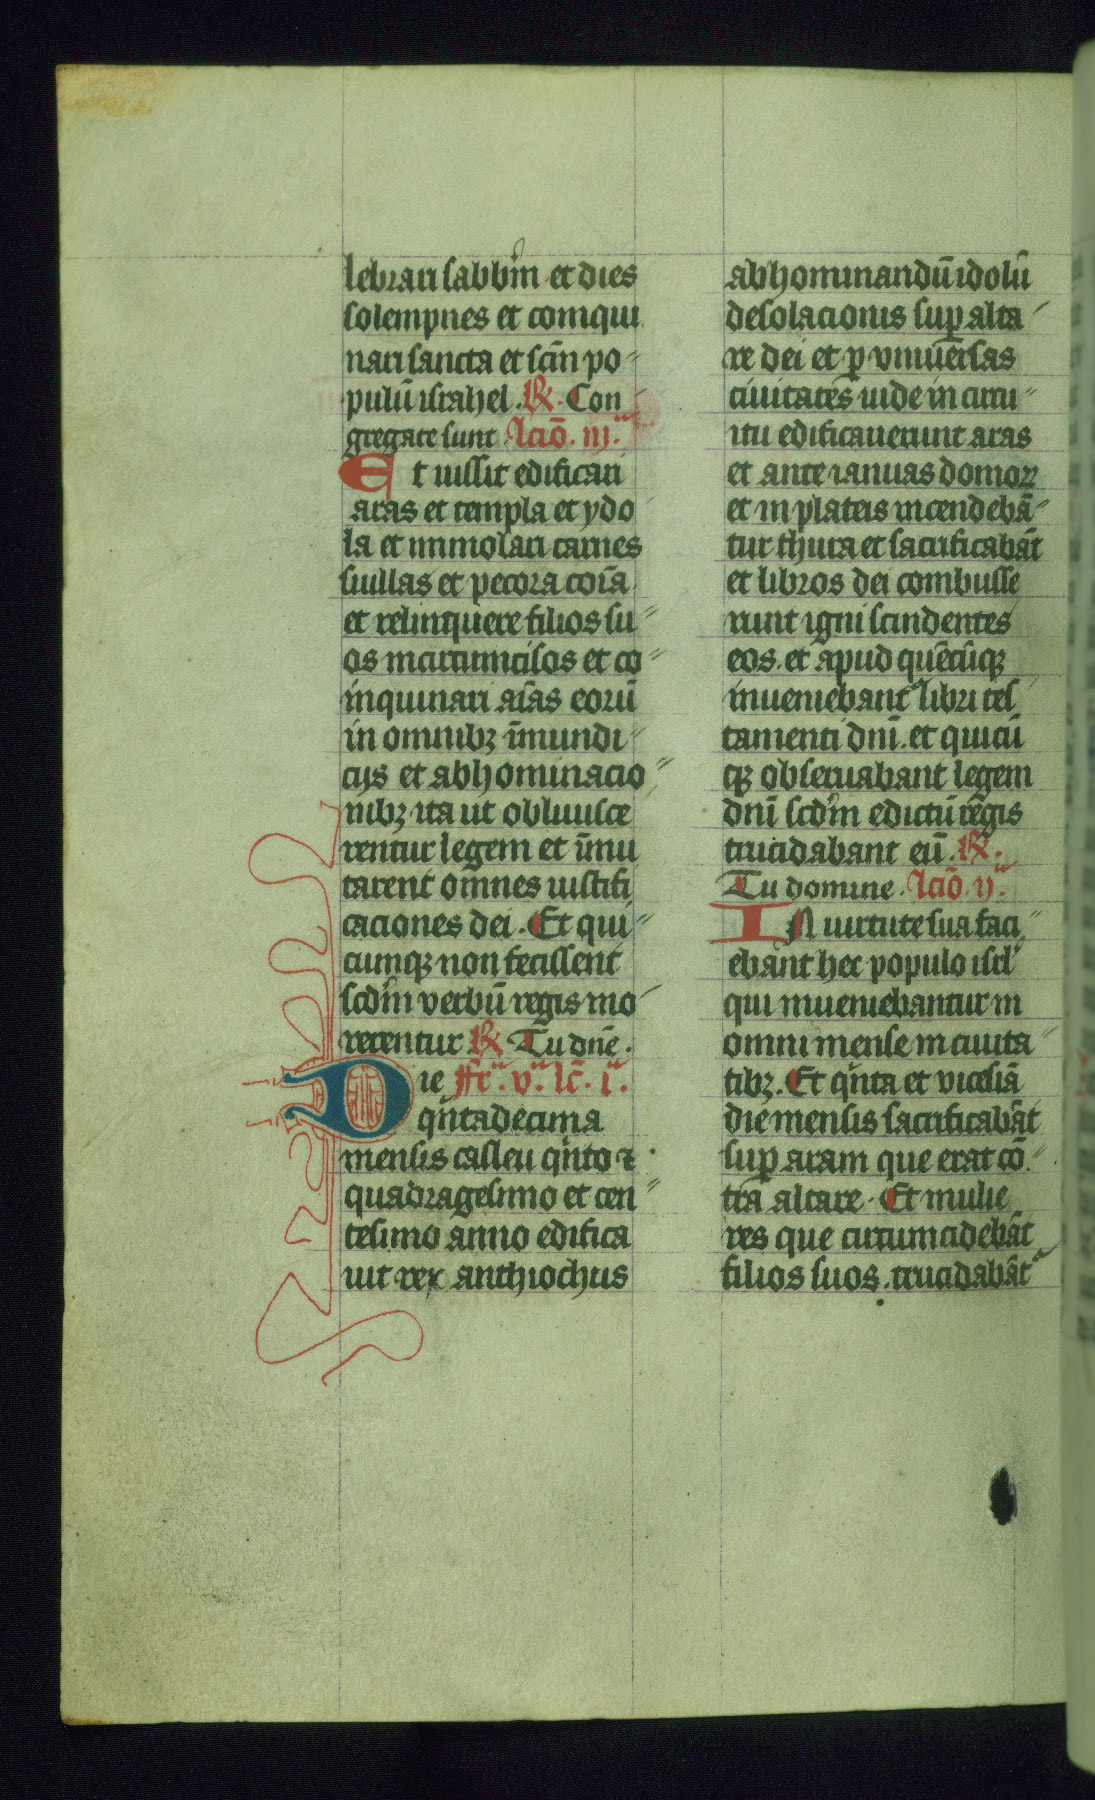 lebrari sabbm̃ et dies
solempnes et comqui
nari sancta et scm̃ po-
pulũ israhel. R̸. Con-
gregate sunt lcıõ. iıı.
Et iussit edificari
aras et templa et ydo
la et immolari carnes
suillas et pecora coı̃a
et relinquere filios su-
os incircumcisos et co-
inquinari aı̃as eorũ
in omnibꝫ ı̃mundi-
cijs et abhominacio-
nibꝫ ita ut obliuisce
rentur legem et ı̃mu
tarent omnes iustifi
caciones dei. Et qui-
cumqꝫ non fecissent
scdm̃ verbũ regis mo-
rerentur R̸ Tu dnẽ.
Die fr̃. v. lc̃. i.
qⁱntadecima
mensis casleu qⁱnto ⁊
quadragesimo et cen-
tesimo anno edifica
uit rex anthiochus
abhominandũ idolũ
desolacionis suꝑ alta-
re dei et ꝑ vniũersas
ciuitates iude in circu-
itu edificauerunt aras
et ante ianuas domoꝝ
et in plateis incendebã-
tur thura et sacrificabãt
et libros dei combusse
runt igni scindentes
eos. et apud quẽcũqꝫ
inueniebant libri tes
tamenti dnı̃. et quicũ
qꝫ obseruabant legem
dnı̃ scdm̃ edictũ regis
trucidabant eũ. R̸.
Tu domine. lcıõ. ıı.
IN uirtute sua faci-
ebant hec populo isrl̃
qui inueniebantur in
omni mense in ciuita-
tibꝫ. Et qⁱnta et vicesiã
die mensis sacrificabãt
suꝑ aram que erat cõ-
tra altare. Et mulie
res que circumcidebãt
filios suos. trucidabãt